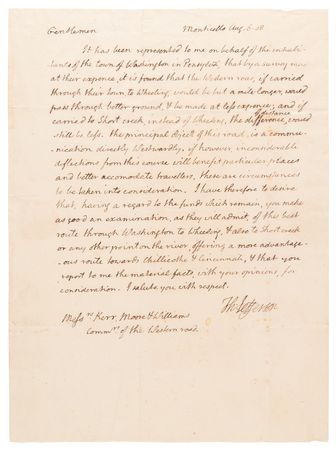 Gentlemen Monticello Aug. 6. 08
It has been represented to me on behalf of the inhabi-
tants of the town of Washington in Pensylva, that by a survey made
at their expence, it is found that the Western road, if carried
through their town to Wheeling, would be but a mile longer, would
pass through better ground, & be made at less expence; and if
carried to Short creek, instead of Wheeling, the difference of distance would
still be less. the principal object of this road, is a commu-
-nication directly Westwardly. if however inconsiderable
deflections from this course will benefit particular places
and better accomodate travellers, these are circumstances
to be taken into consideration. I have therefore to desire
that, having a regard to the funds which remain, you make
as good an examination, as they will admit, of the best
route through Washington to Wheeling, & also to Short creek
or any other point on the river offering a more advantage-
-ous route towards Chillicothe & Cincinnati, & that you
report to me the material facts, with your opinions, for
consideration. I salute you with respect.
Th: Jefferson
Messrs. Kerr, Moore & Williams
Commrs. of the Western road.